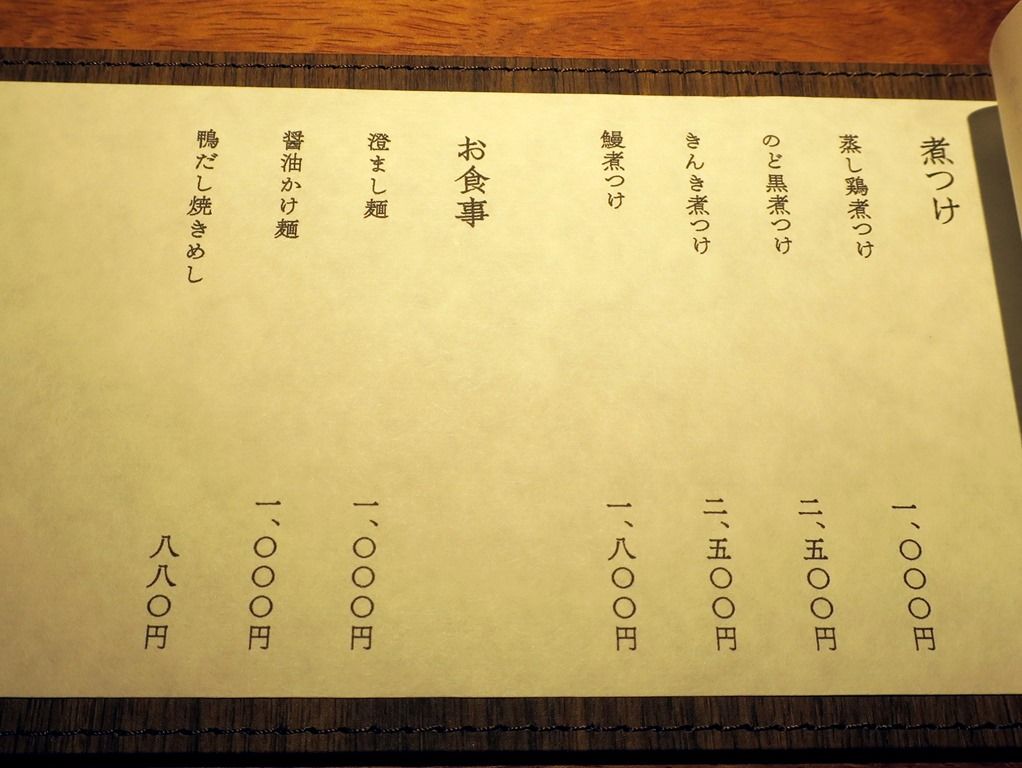 煮つけ
蒸し鶏煮つけ 一、〇〇〇円
のど黒煮つけ 二、五〇〇円
きんき煮つけ 二、五〇〇円
鰻煮つけ 一、八〇〇円
お食事
澄まし麺 一、〇〇〇円
醤油かけ麺 一、〇〇〇円
鴨だし焼きめし 八八〇円